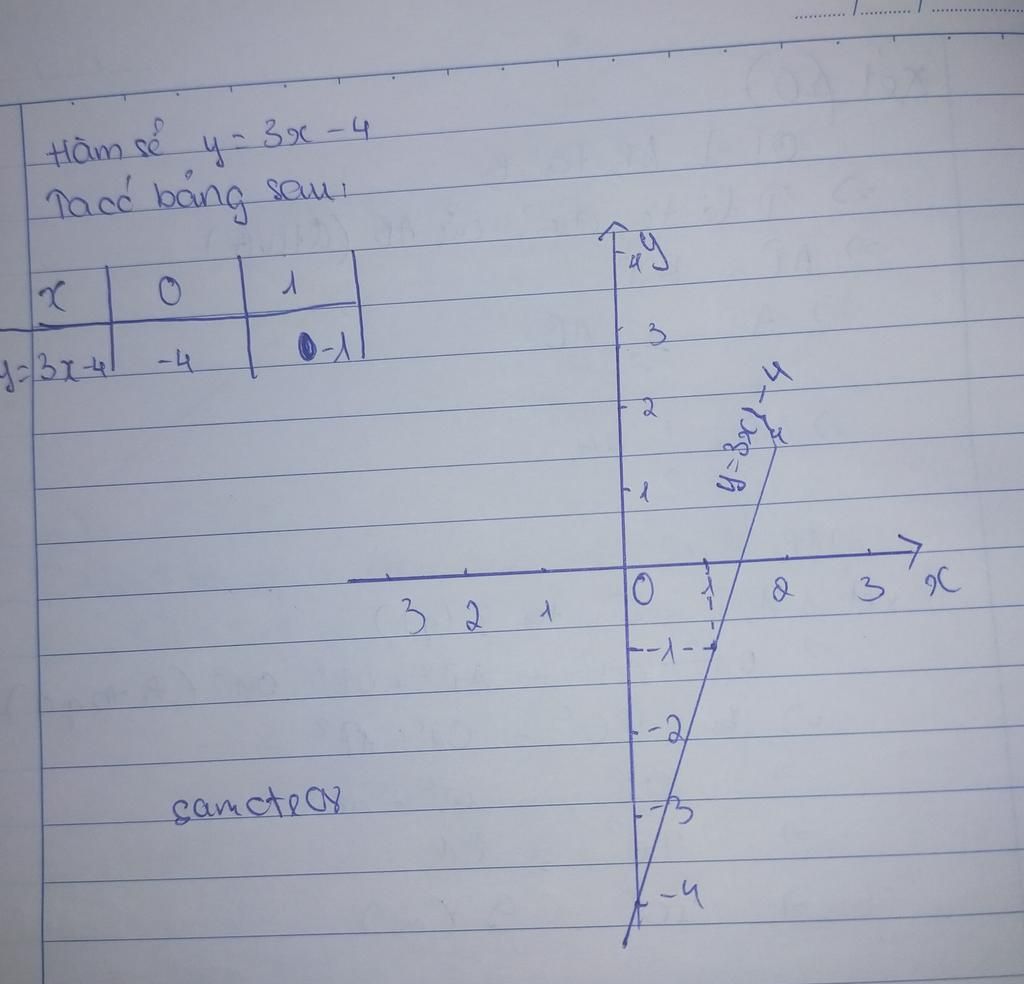 Hàm số y = 3x - 4
Ta có bảng sau:
x 0 1
y = 3x - 4 -4 -1
4 y
3
2
y = 3x - 4
1
3 2 1 0 1 2 3 x
-1
-2
-3
-4